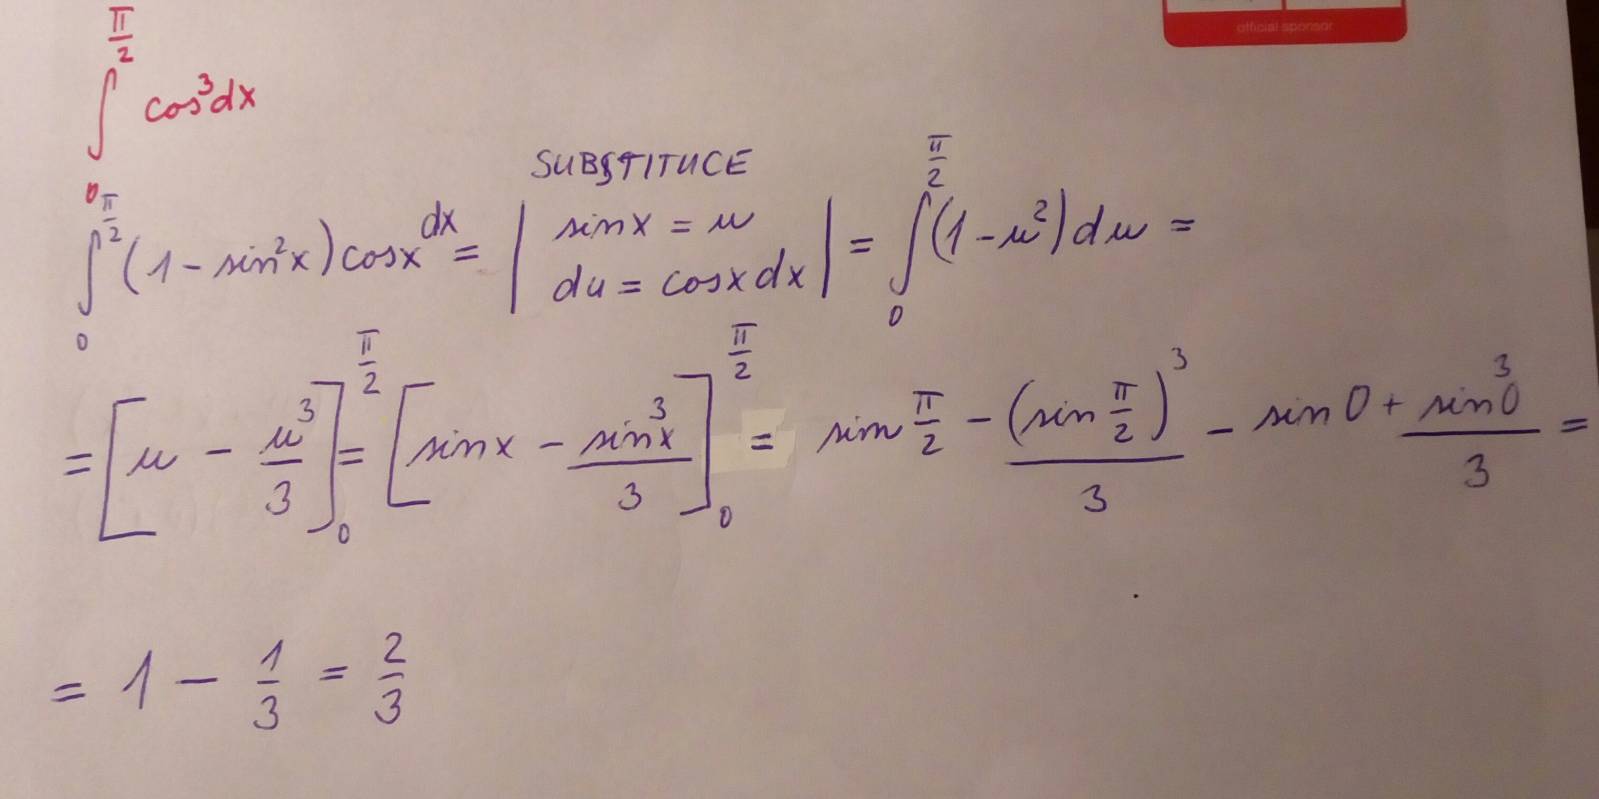 official sponsor
∫₀^{π/2} cos³dx
SUBSTITUCE
∫₀^{π/2} (1 - sin²x) cosx dx = | sinx = u
du = cosx dx | = ∫₀^{π/2} (1 - u²) du =
= [u - u³/3]₀^{π/2} = [sinx - sin³x/3]₀^{π/2} = sin π/2 - (sin π/2)³/3 - sin 0 + sin³0/3 =
= 1 - 1/3 = 2/3